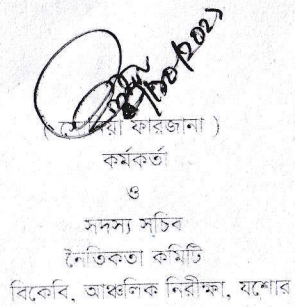 ফারজানা )
কর্মকর্তা
ও
সদস্য সচিব
নৈতিকতা কমিটি
বিকেবি, আঞ্চলিক নিরীক্ষা, যশোর